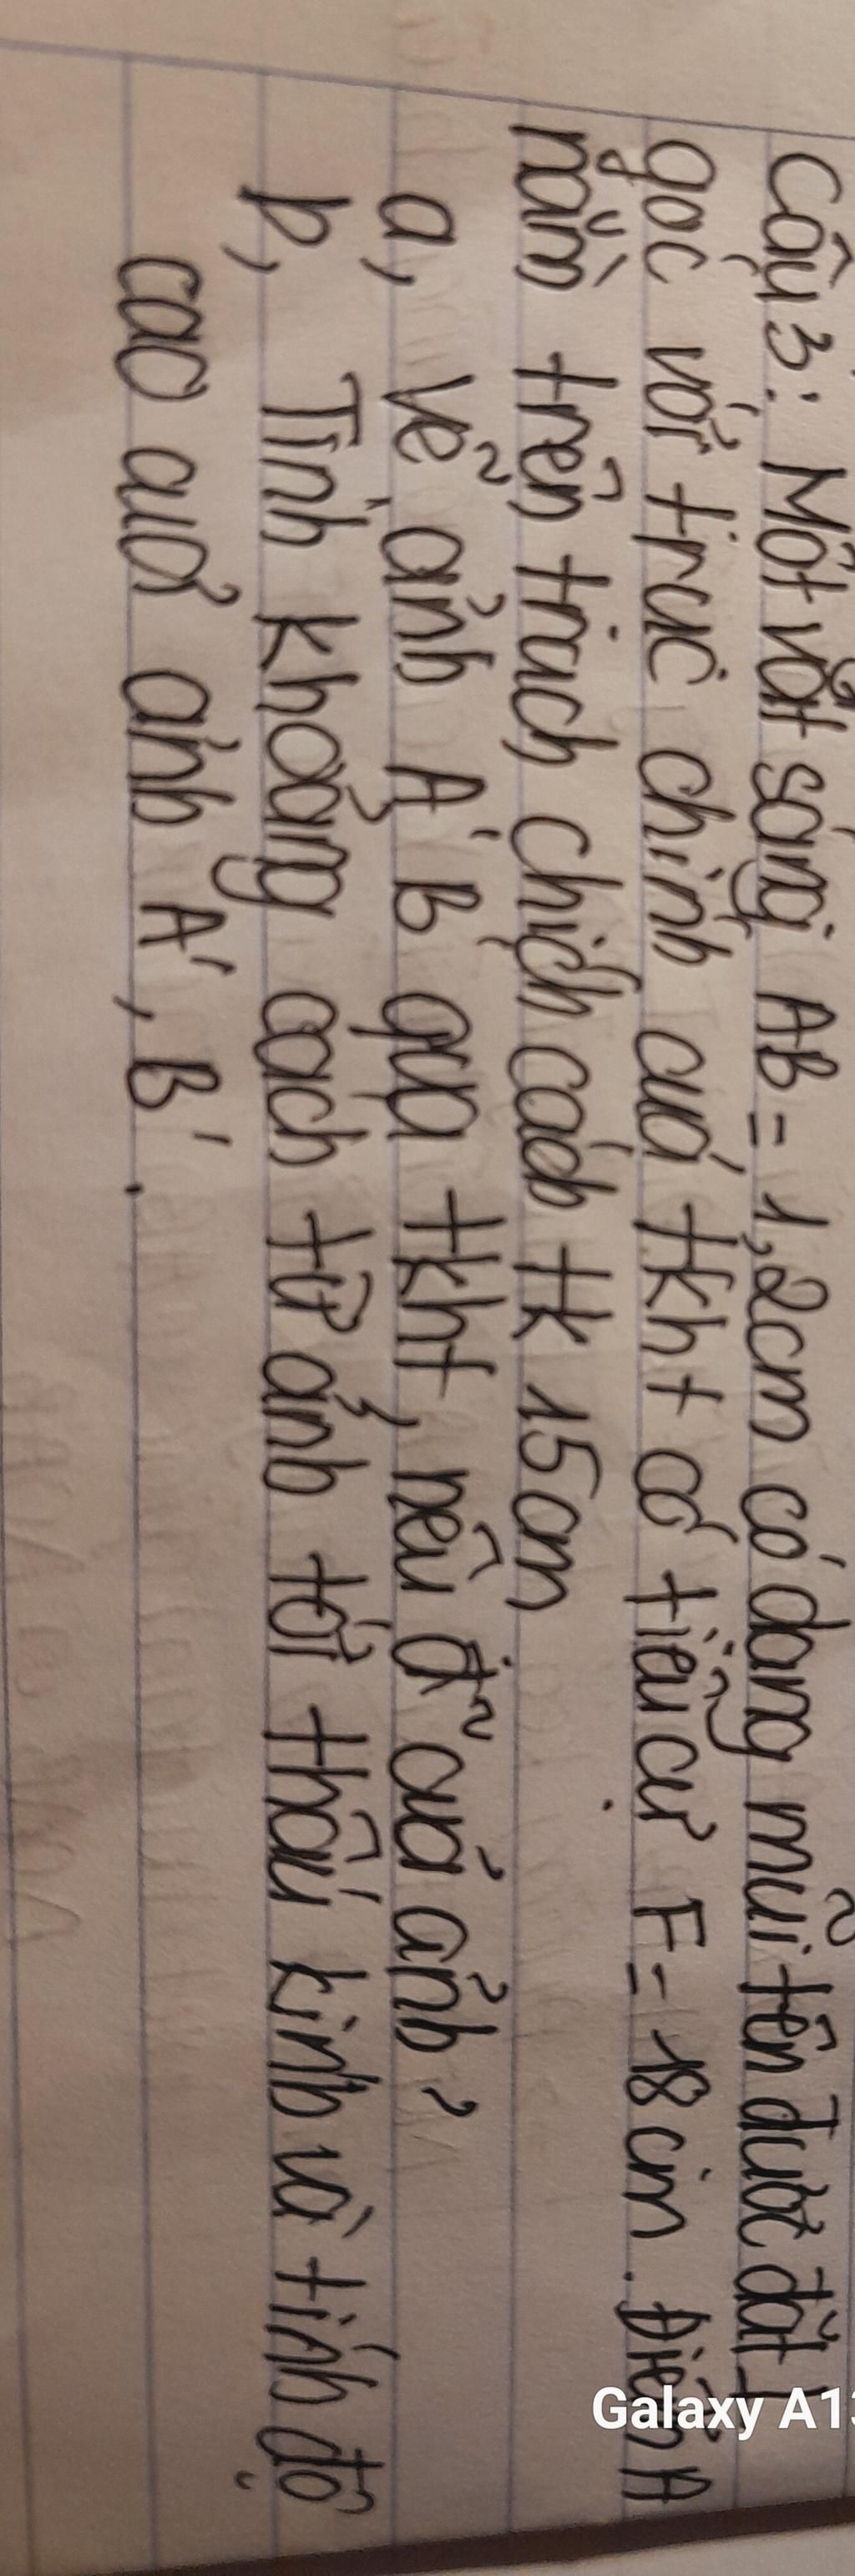 Câu 3: Một vật sáng AB = 1,2cm có dạng mũi tên được đặt ⊥
góc với trục chính của tkht có tiêu cự F = 18 cm. Điểm A
nằm trên trục chính cách tk 15 cm
a, Vẽ ảnh A'B qua tkht, nêu đ² của ảnh?
b, Tính khoảng cách từ ảnh tới thấu kính và tính độ
cao của ảnh A', B'.
Galaxy A13